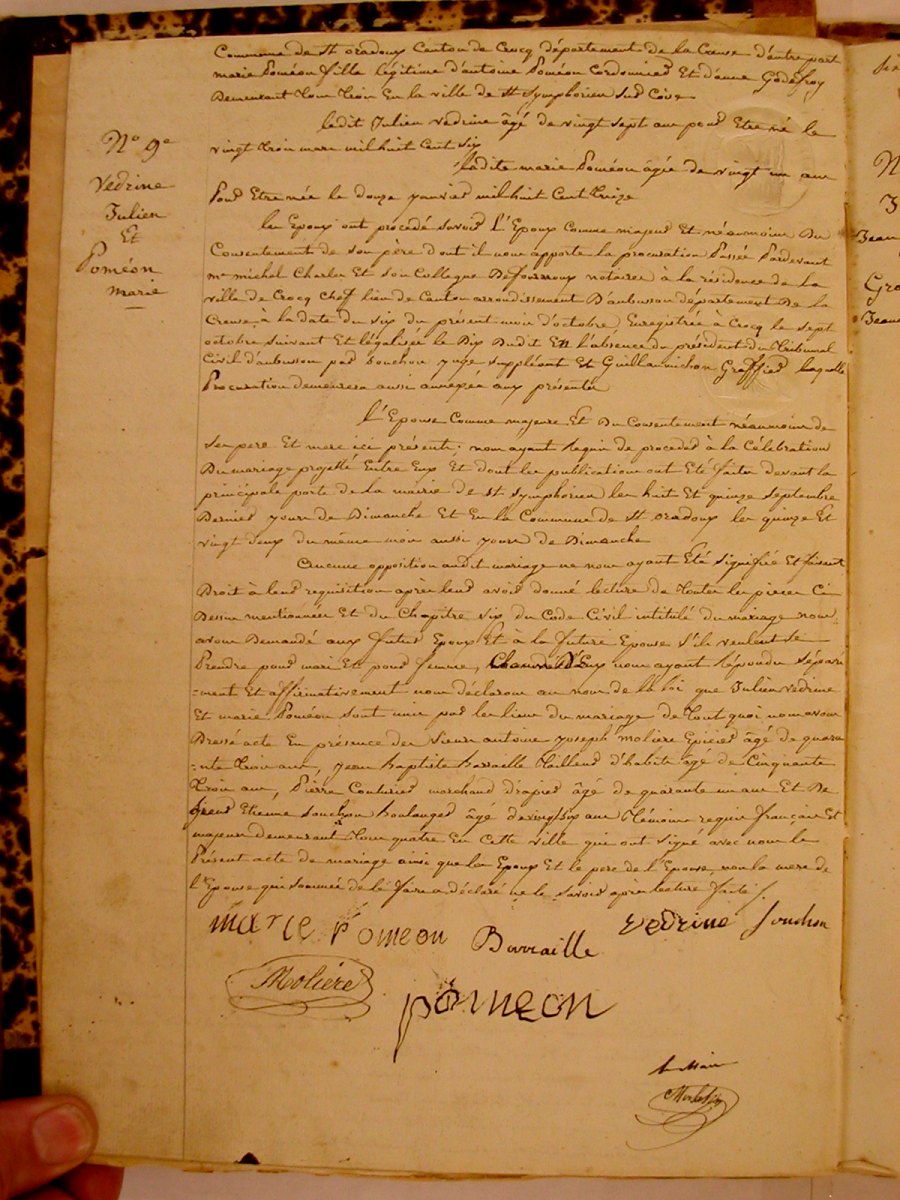 Commune de St oradoux Canton de Crocq département de la Creuse d'autre part
marie Poméon fille légitime d'antoine Poméon Cordonnier Et d'anne Godefroy
Demeurant tous trois En la ville de St Symphorien sur Coise
N° 9e
Vedrine
Julien
Et
Poméon
marie
ledit Julien vedrine âgé de vingt sept ans pour Etre né le
vingt trois mars mil huit Cent six
ladite marie Poméon âgée de vingt un ans
Pour Etre née le douze janvier mil huit Cent treize
les Epoux ont procédé savoir L'Epoux Comme majeur Et néanmoins Du
Consentement de son père dont il nous apporte la procuration Passée Pardevant
me michel Charles Et son Collegue notaires à la résidence de la
ville de Crocq Chef lieu de Canton arrondissement D'aubusson département De la
Creuse, à la date du six du présent mois d'octobre, Enregistrée à Crocq le sept
octobre suivant Et légalisée le Dix Dudit En l'absence du président du Tribunal
Civil d'aubusson par Souchon juge suppléant Et Guillaumichon Greffier laquelle
Procuration demeurera aussi annexée aux présentes
l'Epouse Comme majeure Et Du Consentement néanmoins de
ses pere Et mere ici présents; nous ayant Requis de proceder à la Célébration
Du mariage projetté Entre Eux Et dont les publications ont Eté faites devant la
principale porte de la mairie de St symphorien les huit Et quinze septembre
Dernier jours de Dimanche Et En la Commune de St oradoux les quinze Et
vingt deux du même mois aussi jours de Dimanche
Aucune opposition audit mariage ne nous ayant Eté signifiée Et faisant
Droit à leur requisition après leur avoir donné lecture de toutes les pieces Ci
Dessus mentionnées Et du Chapitre six du Code Civil intitulé du mariage nous
avons Demandé aux futur Epoux Et à la future Epouse s'ils veulent se
Prendre pour mari Et pour femme, Chacun d'Eux nous ayant Répondu séparé
=ment Et affirmativement nous déclarons au nom de la loi que Julien vedrine
Et marie Poméon sont unis par les liens du mariage de tout quoi nous avons
Dressé acte En présence des sieurs antoine joseph molière Epicier âgé de quara
=nte trois ans, jean baptiste barraille tailleur d'habits âgé de Cinquante
trois ans, Pierre Couturier marchand drapier âgé de quarante un ans Et De
Etienne Souchon boulanger âgé de vingt six ans témoins requis français Et
majeurs demeurant tous quatre En Cette ville qui ont signé avec nous le
Présent acte de mariage ainsi que les Epoux Et le pere de l'Epouse, non la mere de
l'Epouse qui sommée de le faire a déclaré ne le savoir après lecture faite.
marie Poméon Barraille vedrine Souchon
Molière
poméon
le Maire